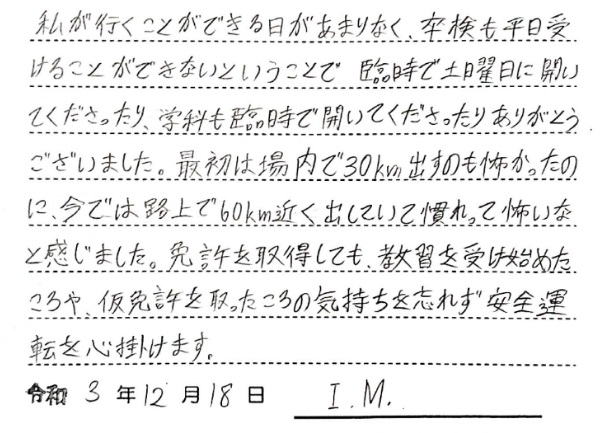 私が行くことができる日があまりなく、卒検も平日受
けることができないということで 臨時で土曜日に開い
てくださったり、学科も臨時で開いてくださったりありがとう
ございました。最初は場内で30km出すのも怖かったの
に、今では路上で60km近く出していて慣れって怖いな
と感じました。免許を取得しても、教習を受け始めた
ころや、仮免許を取ったころの気持ちを忘れず安全運
転を心掛けます。
令和 3 年 12 月 18 日 I.M.